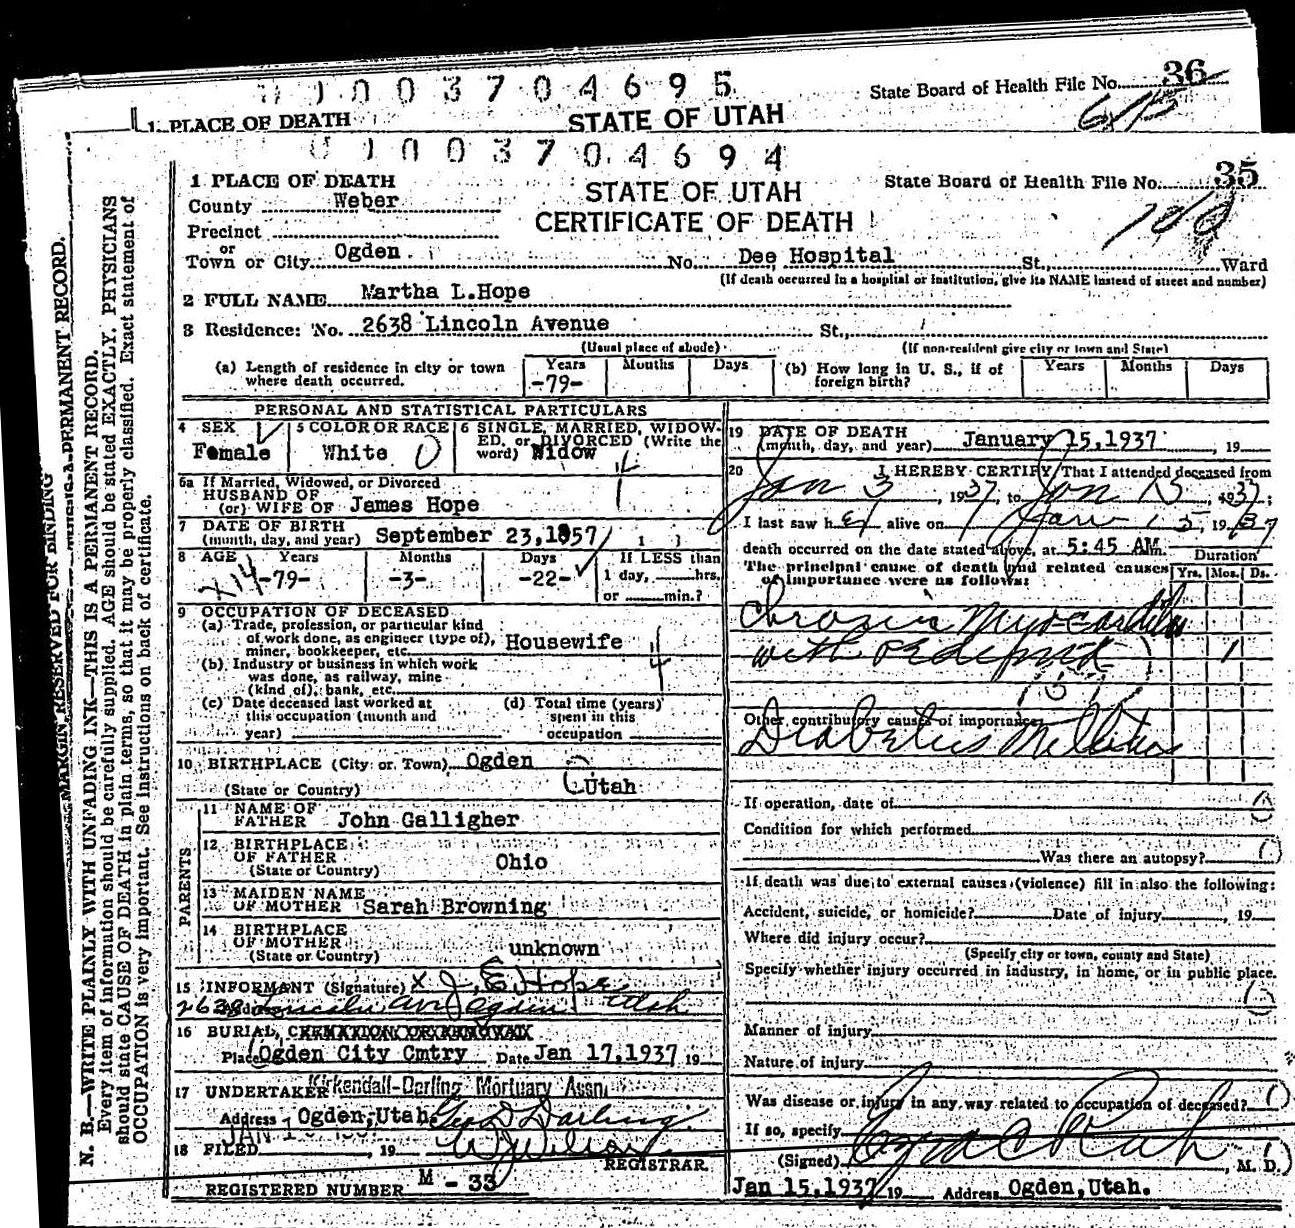 0 0 3 7 0 4 6 9 5
State Board of Health File No. 36
1 PLACE OF DEATH
STATE OF UTAH
0 0 3 7 0 4 6 9 4
State Board of Health File No. 35
1 PLACE OF DEATH
STATE OF UTAH
CERTIFICATE OF DEATH
County Weber
Precinct
or
Town or City Ogden No. Dee Hospital St., Ward
(If death occurred in a hospital or institution, give its NAME instead of street and number)
2 FULL NAME Martha L.Hope
3 Residence: No. 2638 Lincoln Avenue St.,
(Usual place of abode) (If non-resident give city or town and State)
(a) Length of residence in city or town where death occurred. Years -79- Months Days
(b) How long in U. S., if of foreign birth? Years Months Days
PERSONAL AND STATISTICAL PARTICULARS
4 SEX Female
5 COLOR OR RACE White
6 SINGLE, MARRIED, WIDOWED, or DIVORCED (Write the word) Widow
6a If Married, Widowed, or Divorced
HUSBAND OF
(or) WIFE OF James Hope
7 DATE OF BIRTH
(month, day, and year) September 23,1857
8 AGE Years -79- Months -3- Days -22- If LESS than
1 day, hrs.
or min.?
9 OCCUPATION OF DECEASED
(a) Trade, profession, or particular kind
of work done, as engineer (type of),
miner, bookkeeper, etc. Housewife
(b) Industry or business in which work
was done, as railway, mine
(kind of), bank, etc.
(c) Date deceased last worked at
this occupation (month and
year)
(d) Total time (years)
spent in this
occupation
10 BIRTHPLACE (City or Town) Ogden
(State or Country) Utah
PARENTS
11 NAME OF
FATHER John Galligher
12 BIRTHPLACE
OF FATHER Ohio
(State or Country)
13 MAIDEN NAME
OF MOTHER Sarah Browning
14 BIRTHPLACE
OF MOTHER unknown
(State or Country)
15 INFORMANT (Signature) x J. E. Hope
Address 2638 Lincoln Ave Ogden Utah
16 BURIAL, CREMATION OR REMOVAL
Place Ogden City Cmtry Date Jan 17,1937 19
17 UNDERTAKER Kirkendall-Darling Mortuary Assn
Address Ogden,Utah. Geo D Darling
18 FILED , 19 W J Wilson
REGISTRAR.
REGISTERED NUMBER M - 33
19 DATE OF DEATH
(month, day, and year) January 15,1937 , 19
20 I HEREBY CERTIFY, That I attended deceased from
Jan 3, 1937, to Jan 15, 1937;
I last saw her alive on Jan 15, 1937
death occurred on the date stated above, at 5:45 AM.
Duration
The principal cause of death and related causes of importance were as follows:
Yrs. Mos. Ds.
Chronic Myocarditis
with
1
Other contributory causes of importance
Diabetus Mellitus
If operation, date of
Condition for which performed
Was there an autopsy?
If death was due to external causes (violence) fill in also the following:
Accident, suicide, or homicide? Date of injury , 19
Where did injury occur?
(Specify city or town, county and State)
Specify whether injury occurred in industry, in home, or in public place.
Manner of injury
Nature of injury
Was disease or injury in any way related to occupation of deceased?
If so, specify
(Signed) , M. D.
Jan 15,1937 19 Address Ogden,Utah.
MARGIN RESERVED FOR BINDING
N. B.—WRITE PLAINLY WITH UNFADING INK—THIS IS A PERMANENT RECORD.
Every item of information should be carefully supplied. AGE should be stated EXACTLY. PHYSICIANS
should state CAUSE OF DEATH in plain terms, so that it may be properly classified. Exact statement of
OCCUPATION is very important. See instructions on back of certificate.